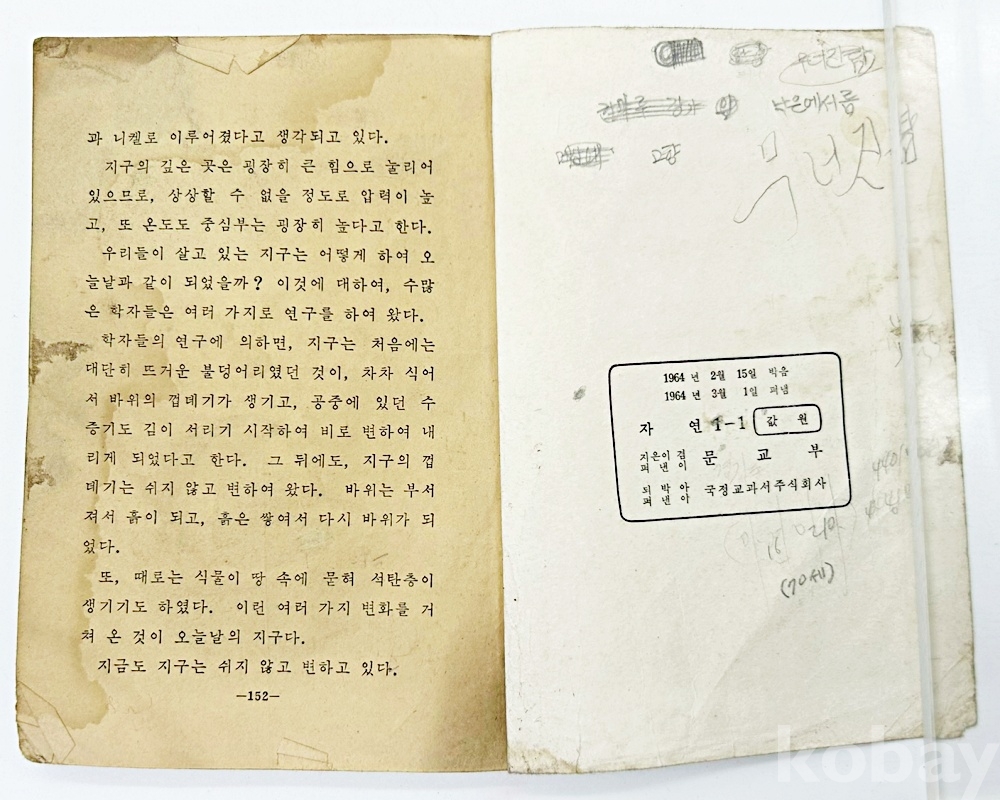 과 니켈로 이루어졌다고 생각되고 있다.
지구의 깊은 곳은 굉장히 큰 힘으로 눌리어
있으므로, 상상할 수 없을 정도로 압력이 높
고, 또 온도도 중심부는 굉장히 높다고 한다.
우리들이 살고 있는 지구는 어떻게 하여 오
늘날과 같이 되었을까? 이것에 대하여, 수많
은 학자들은 여러 가지로 연구를 하여 왔다.
학자들의 연구에 의하면, 지구는 처음에는
대단히 뜨거운 불덩어리였던 것이, 차차 식어
서 바위의 껍데기가 생기고, 공중에 있던 수
증기도 김이 서리기 시작하여 비로 변하여 내
리게 되었다고 한다. 그 뒤에도, 지구의 껍
데기는 쉬지 않고 변하여 왔다. 바위는 부서
져서 흙이 되고, 흙은 쌓여서 다시 바위가 되
었다.
또, 때로는 식물이 땅 속에 묻혀 석탄층이
생기기도 하였다. 이런 여러 가지 변화를 거
쳐 온 것이 오늘날의 지구다.
지금도 지구는 쉬지 않고 변하고 있다.
—152—
낙은에서름
고향
1964 년 2월 15일 박음
1964 년 3월 1일 펴냄
자 연 1-1 값 원
지은이 겸 펴낸이 문 교 부
박아 펴낸이 국정교과서주식회사
(70세)
kobay